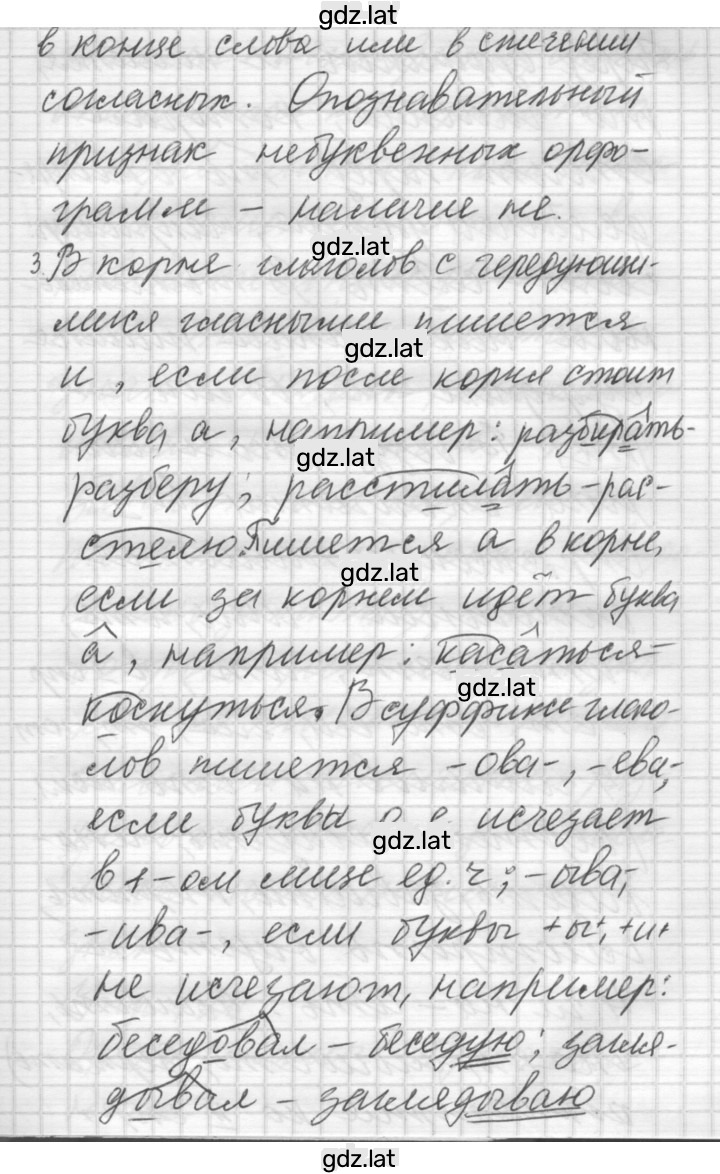 gdz.lat
в конце слова или в стечении
согласных. Опознавательный
признак небуквенных орфо-
грамм – наличие не.
gdz.lat
3. В корня глаголов с чередующи-
мися гласными пишется
gdz.lat
и, если после корня стоит
буква а, например: разбирать-
gdz.lat
разберу; расстилать – рас-
стелю. Пишется а в корне,
gdz.lat
если за корнем идёт буква
а, например: касаться –
gdz.lat
коснуться. В суффиксе глаго-
лов пишется -ова-, -ева-,
если буквы исчезает
gdz.lat
в 1-ом лице ед. ч; -ыва-,
-ива-, если буквы +ы+, +и+
не исчезают, например:
беседовал – беседую; загля-
дывал – заглядываю
gdz.lat